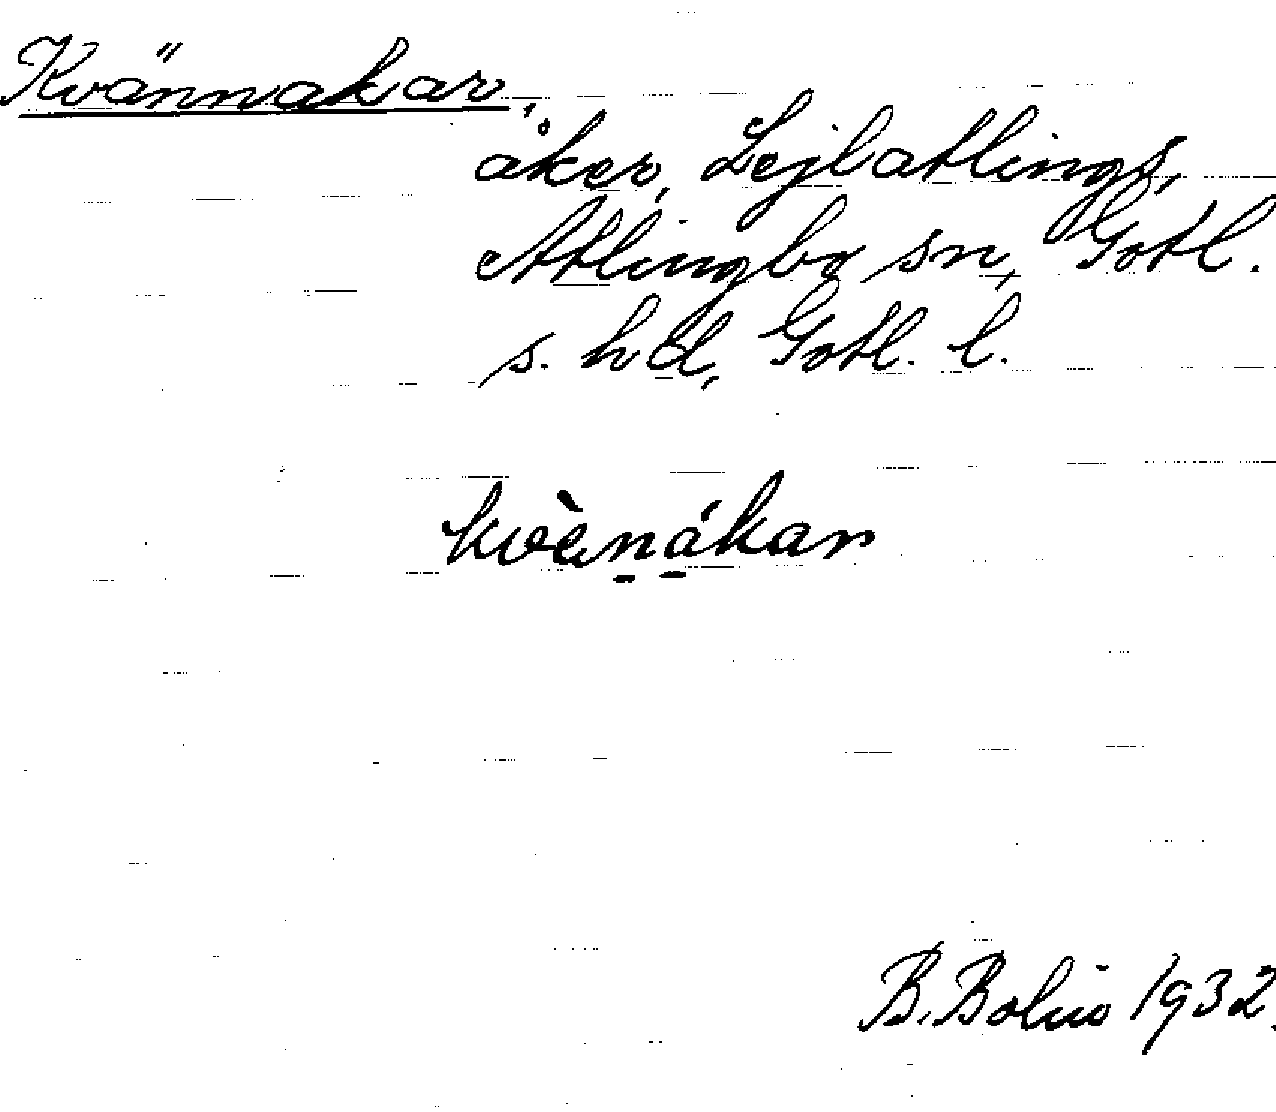 Kvännakar,
åker, Lejlatlings,
Atlingbo sn, Gotl.
s. hd, Gotl. l.
kvὲnákar
B. Bolin 1932.